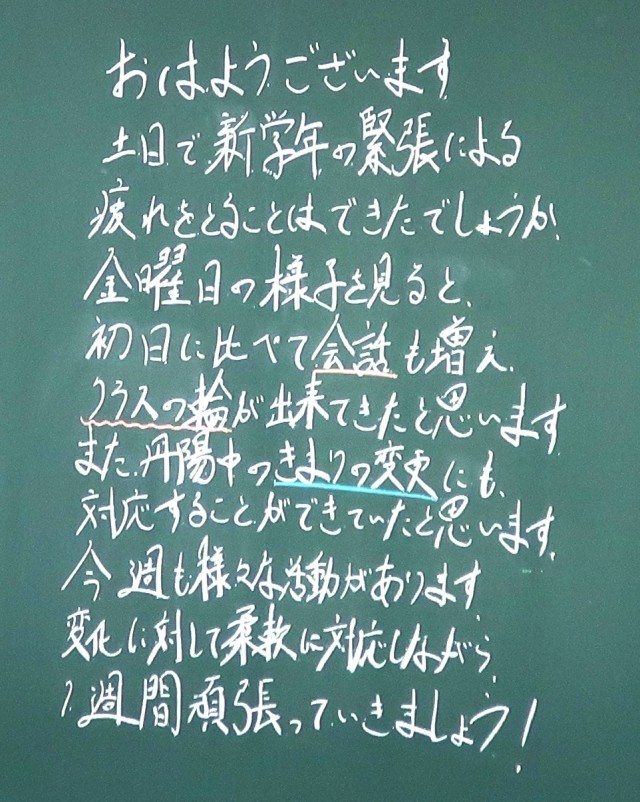 おはようございます
土日で新学年の緊張による
疲れをとることはできたでしょうか。
金曜日の様子を見ると、
初日に比べて会話も増え、
クラスの輪が出来てきたと思います
また、丹陽中のきまりの変更にも、
対応することができていたと思います。
今週も様々な活動があります
変化に対して柔軟に対応しながら、
1週間頑張っていきましょう！